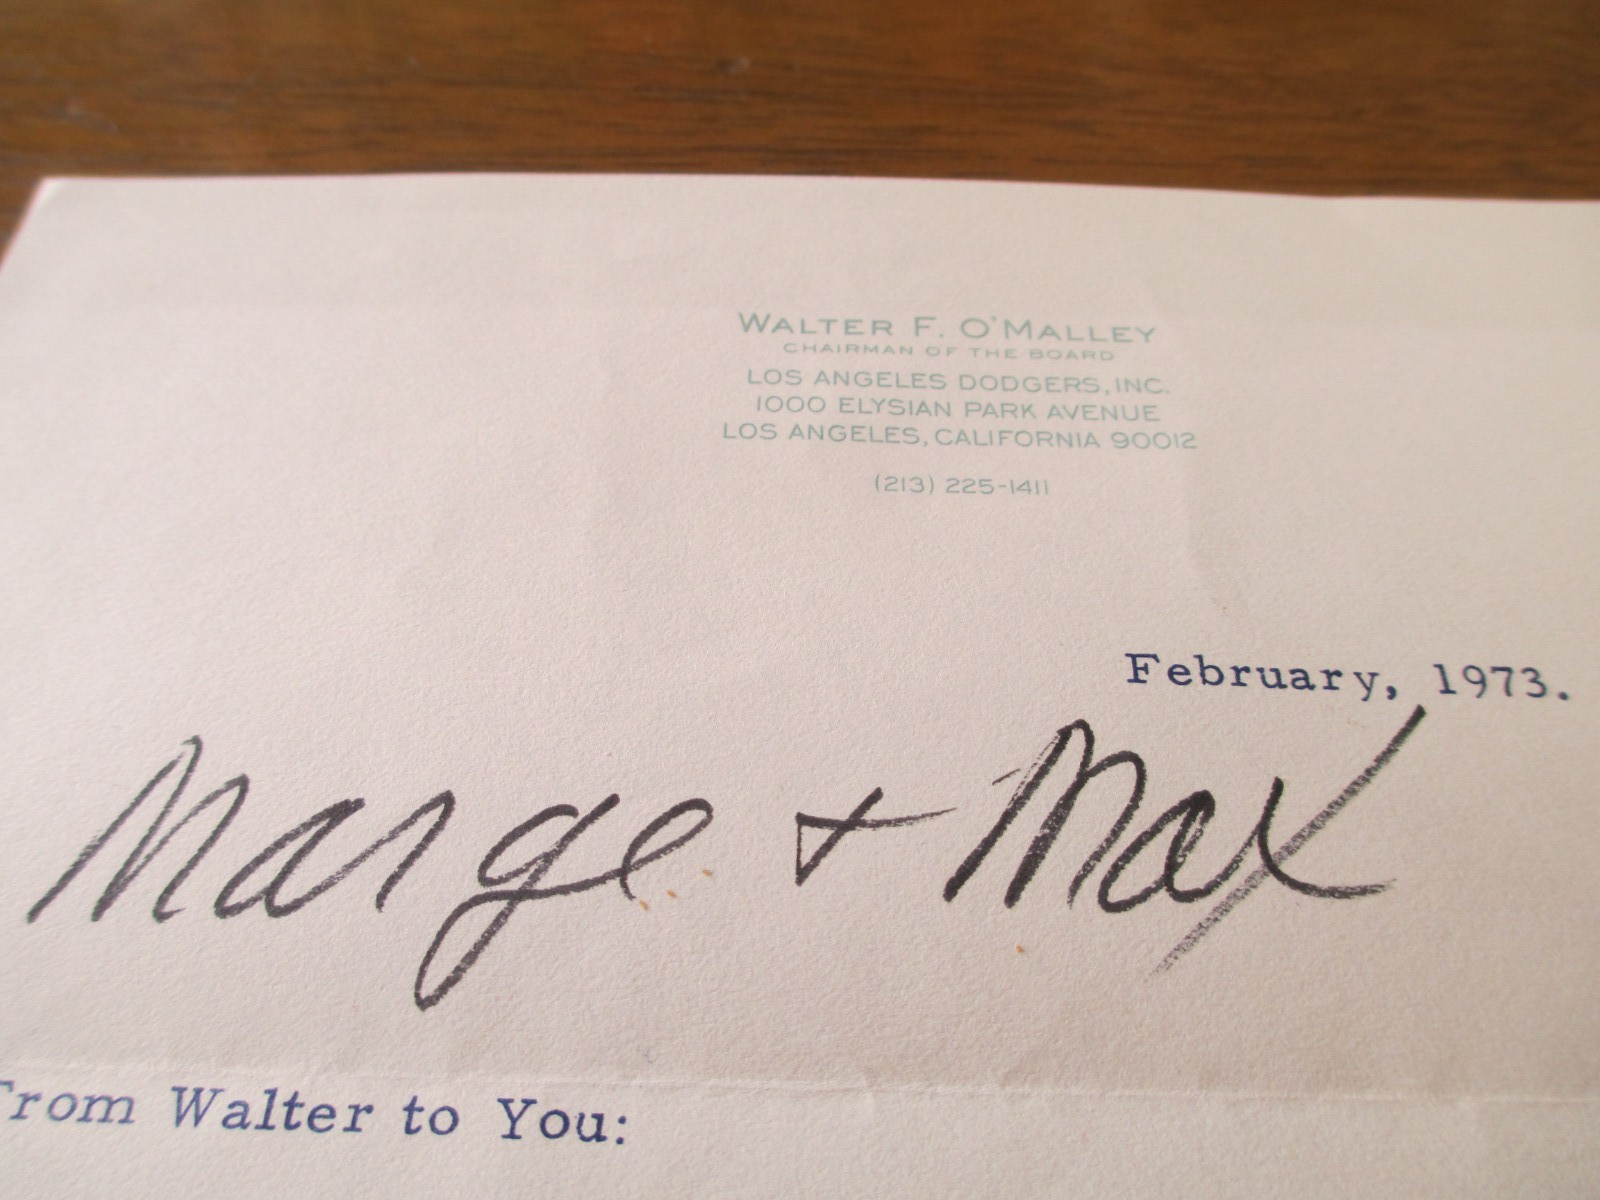 WALTER F. O'MALLEY
CHAIRMAN OF THE BOARD
LOS ANGELES DODGERS, INC.
1000 ELYSIAN PARK AVENUE
LOS ANGELES, CALIFORNIA 90012
(213) 225-1411
February, 1973.
Marge + Max
From Walter to You: